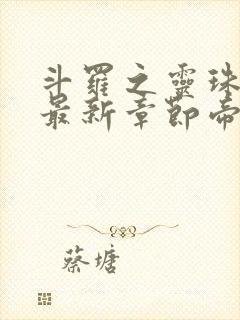 斗羅之靈珠
最新章節帝
蔡塘